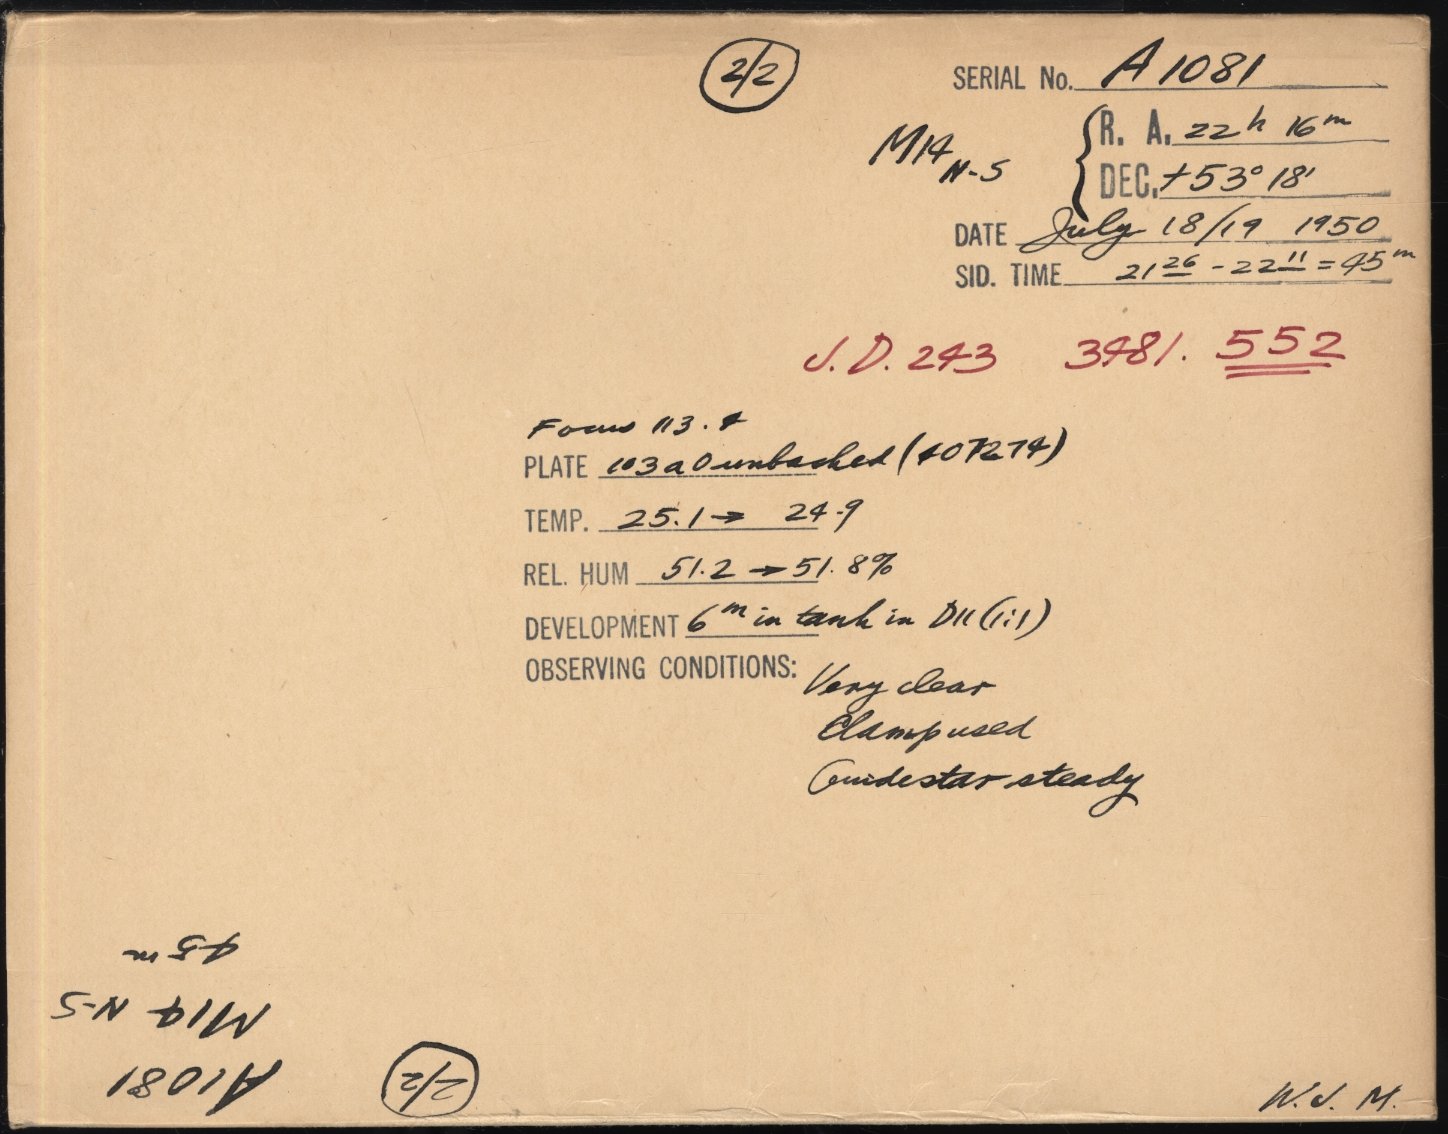 2/2
SERIAL No. A1081
M14 N-S
R. A. 22h 16m
DEC. +53° 18'
DATE July 18/19 1950
SID. TIME 21 26 - 22 11 = 45m
J.D. 243 3481. 552
Focus 113.4
PLATE 103aO unbacked (407274)
TEMP. 25.1 → 24.9
REL. HUM 51.2 → 51.8%
DEVELOPMENT 6m in tank in D11 (1:1)
OBSERVING CONDITIONS:
Very clear
Clamp used
Guidestar steady
A1081
M14 N-S
45m
2/2
W.J.M.